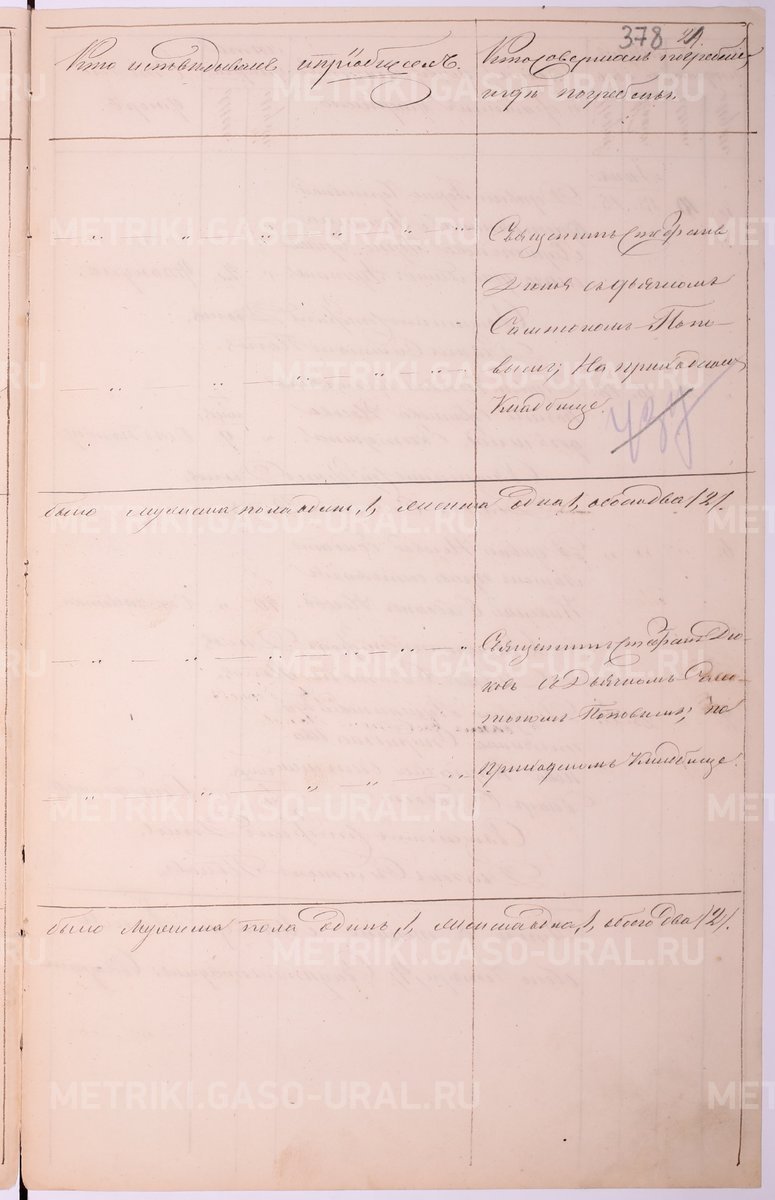 378 29.
Кто исповѣдывалъ и пріобщалъ.
Кто совершалъ погребеніе,
и гдѣ погребены.
Священникъ Стефанъ
съ Дьячкомъ
Попо-
вымъ, На приходскомъ
Кладбище.
было мужеска пола одинъ, 1, женска одна 1, обоего два /2/.
Священникъ Стефанъ Ди-
ковъ съ Дьячкомъ
Поповымъ, на
приходскомъ Кладбище.
было мужеска пола одинъ, 1, женска одна, 1, обоего два /2/.
METRIKI.GASO-URAL.RU